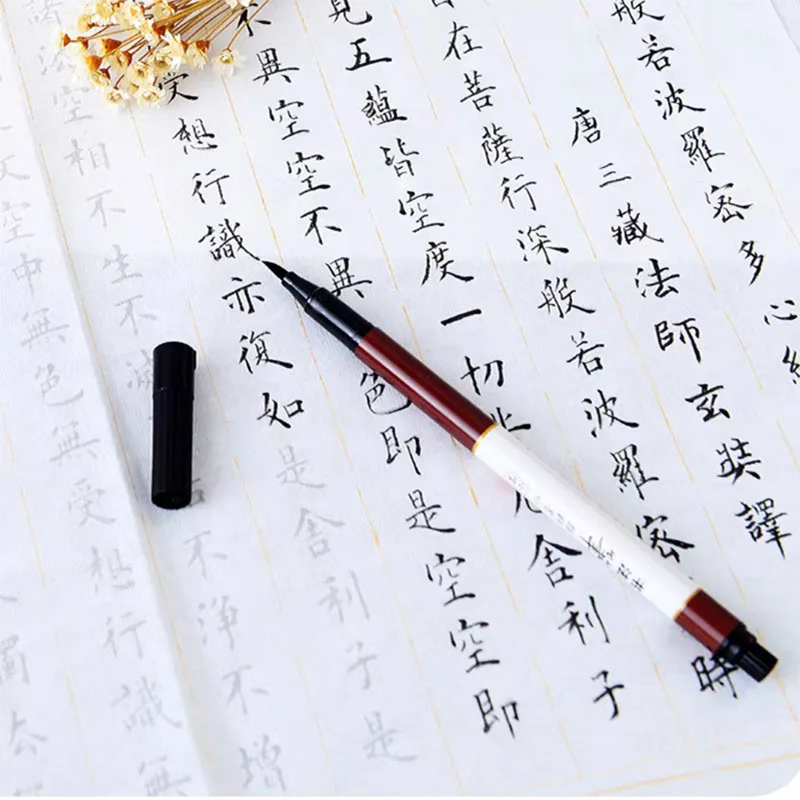 般若波羅密多心
唐三藏法師玄奘譯
在菩薩行深般若波羅密時
見五蘊皆空度一切厄舍利子
不異空空不異色即是空空即
受想行識亦復如是舍利子是
諸法空相不生不滅不淨不增
空中無色無受想行識無